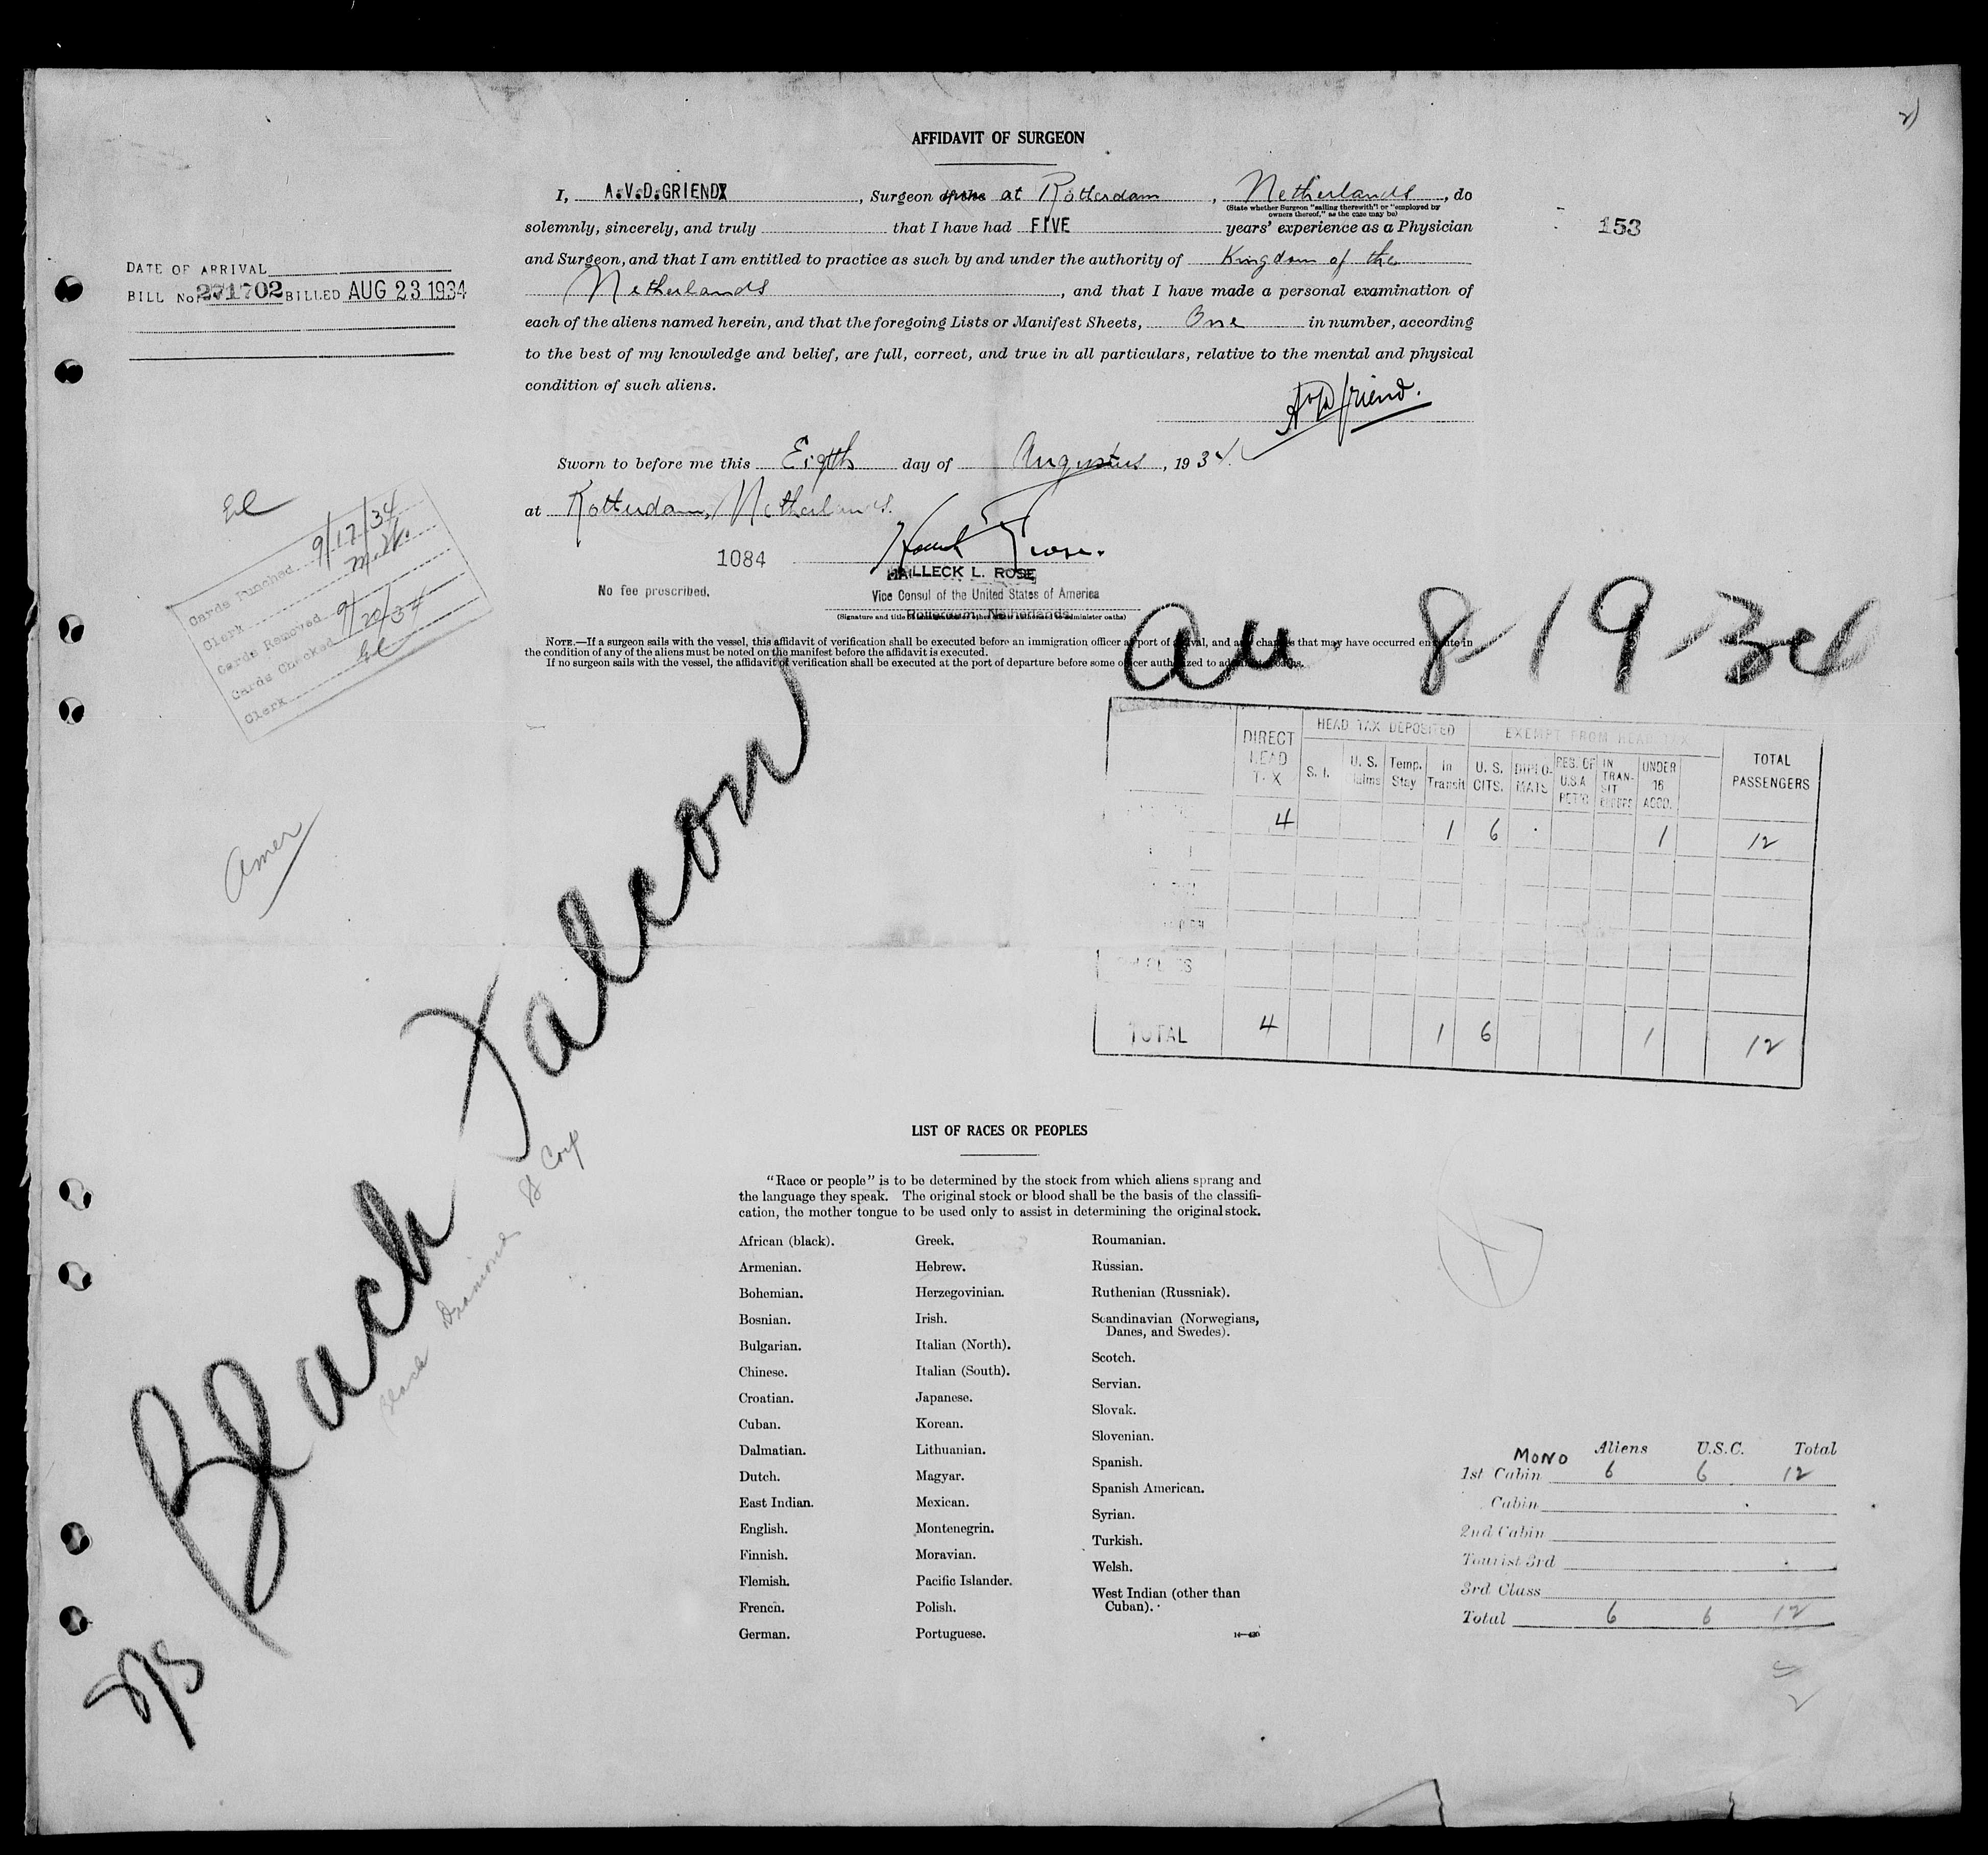 AFFIDAVIT OF SURGEON
I, A.V.D.GRIEND, Surgeon at Rotterdam, Netherlands, do
(State whether Surgeon "sailing therewith" or "employed by
owners thereof," as the case may be)
solemnly, sincerely, and truly that I have had FIVE years' experience as a Physician
153
and Surgeon, and that I am entitled to practice as such by and under the authority of Kingdom of the
Netherlands, and that I have made a personal examination of
each of the aliens named herein, and that the foregoing Lists or Manifest Sheets, One in number, according
to the best of my knowledge and belief, are full, correct, and true in all particulars, relative to the mental and physical
condition of such aliens.
DATE OF ARRIVAL
BILL No. 271702 BILLED AUG 23 1934
AvdGriend.
Sworn to before me this Eigth day of Augustus, 1934.
at Rotterdam, Netherlands.
1084
HALLECK L. ROSE
No fee prescribed.
Vice Consul of the United States of America
Rotterdam, Netherlands.
NOTE.—If a surgeon sails with the vessel, this affidavit of verification shall be executed before an immigration officer at port of arrival, and any changes that may have occurred en route in
the condition of any of the aliens must be noted on the manifest before the affidavit is executed.
If no surgeon sails with the vessel, the affidavit of verification shall be executed at the port of departure before some officer authorized to administer oaths.
Cards Punched 9/17/34
Clerk
Cards Removed
Cards Checked 9/20/34
Clerk
8-19-34
Amer
S/S Black Falcon
Black Diamond SS Corp
DIRECT HEAD TAX
HEAD TAX DEPOSITED
EXEMPT FROM HEAD TAX
TOTAL PASSENGERS
S. I.
U. S. Claims
Temp. Stay
In Transit
U. S. CITS.
DIPLO-MATS
RES. OF U.S.A. RET'G
IN TRAN-SIT
UNDER 16 ACCD.
4 1 6 1 12
TOTAL 4 1 6 1 12
LIST OF RACES OR PEOPLES
"Race or people" is to be determined by the stock from which aliens sprang and
the language they speak. The original stock or blood shall be the basis of the classifi-
cation, the mother tongue to be used only to assist in determining the original stock.
African (black).
Armenian.
Bohemian.
Bosnian.
Bulgarian.
Chinese.
Croatian.
Cuban.
Dalmatian.
Dutch.
East Indian.
English.
Finnish.
Flemish.
French.
German.
Greek.
Hebrew.
Herzegovinian.
Irish.
Italian (North).
Italian (South).
Japanese.
Korean.
Lithuanian.
Magyar.
Mexican.
Montenegrin.
Moravian.
Pacific Islander.
Polish.
Portuguese.
Roumanian.
Russian.
Ruthenian (Russniak).
Scandinavian (Norwegians,
Danes, and Swedes).
Scotch.
Servian.
Slovak.
Slovenian.
Spanish.
Spanish American.
Syrian.
Turkish.
Welsh.
West Indian (other than
Cuban).
MONO Aliens U.S.C. Total
1st Cabin 6 6 12
Cabin
2nd Cabin
Tourist 3rd
3rd Class
Total 6 6 12